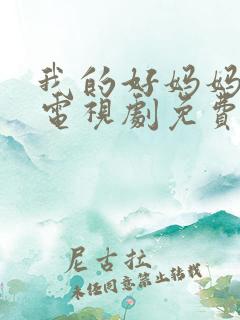 我的好妈妈
電視劇免費
尼古拉
未任同意禁止转载